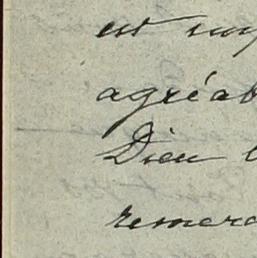 est imp
agréab
Dieu l
remerc